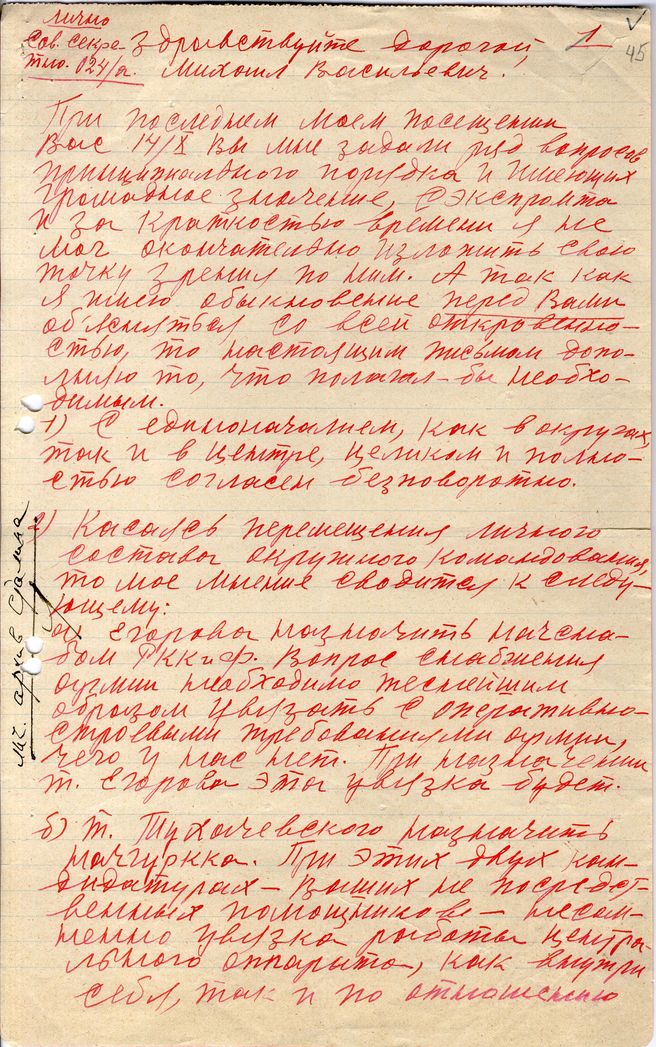 лично
Сов. Секре-
тно. 024/а.
1
45
Здравствуйте дорогой,
Михаил Васильевич.
При последнем моем посещении
Вас 14/X Вы мне задали ряд вопросов
принципиального порядка и имеющих
громадное значение. С экспромта
и за краткостью времени я не
мог окончательно изложить свою
точку зрения по ним. А так как
я имею обыкновение перед Вами
об'ясняться со всей откровенно-
стью, то настоящим письмом допо-
лняю то, что полагал-бы необхо-
димым.
1) С единоначалием, как в округах,
так и в центре, целиком и полно-
стью согласен безповоротно.
2) Касаясь перемещения личного
состава окружного командования,
то мое мнение сводится к следу-
ющему:
а) Егорова назначить начсна-
бом РККиФ. Вопрос снабжения
армии необходимо теснейшим
образом увязать с оперативно-
строевыми требованиями армии,
чего у нас нет. При назначении
т. Егорова эта увязка будет.
б) т. Тухачевского назначить
начгуркка. При этих двух кан-
дидатурах - Ваших не посредст-
венных помощников - несом-
ненно увязка работы центра-
льного аппарата, как внутри
себя, так и по отношению
лич. архив Сталина